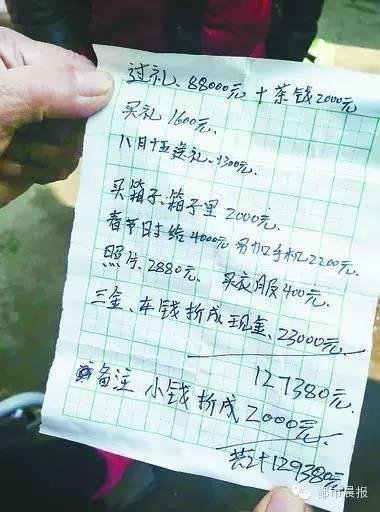 过礼、88000元 + 茶钱2000元
买礼 1600元.
八月十五送礼、1300元.
买箱子、箱子里2000元.
春节日时给4000元 另加手机2200元.
照片、2880元、买衣服400元.
三金、车钱折成现金、23000元.
127380元.
备注 小钱折成2000元.
共计129380元
都市晨报